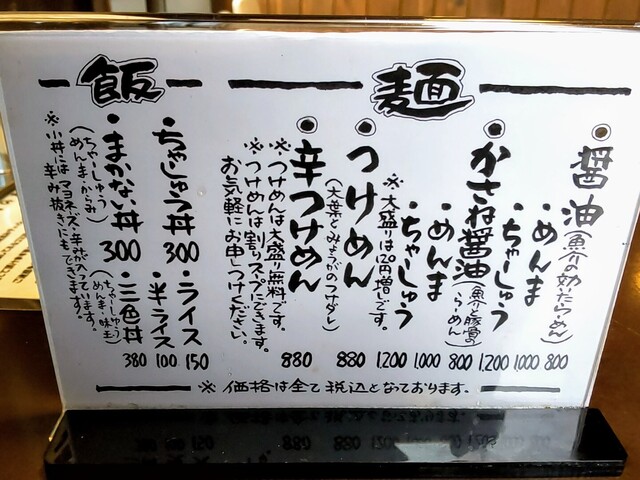 麺
醤油(魚介の効いたらーめん) 800
・めんま 1,000
・ちゃーしゅう 1,200
かさね醤油(魚介と豚骨のらーめん) 800
・めんま 1,000
・ちゃーしゅう 1,200
※大盛りは120円増しです。
つけめん(大葉とみょうがのつけダレ) 880
辛つけめん 880
※つけめんは大盛り無料です。
※つけめんは割りスープにできます。
お気軽にお申しつけください。
飯
・ちゃーしゅう丼 300
・ライス 150
・半ライス 100
・まかない丼 300
(ちゃーしゅう めんま・からみ)
・三色丼 380
(ちゃーしゅう めんま・味玉)
※小丼にはマヨネーズ・辛味が入っています。
辛み抜きにもできます。
※価格は全て税込となっております。